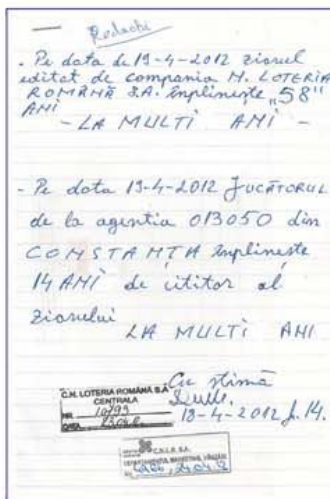 Redacti
. Pe data de 19-4-2012 ziarul
editat de compania N. LOTERIA
ROMÂNĂ S.A. împlinește „58"
ANI
- LA MULTI ANI -
- Pe data 19-4-2012 JUCĂTORUL
de la agentia 013050 din
CONSTANTA împlineste
14 ANI de cititor al
ziarului
LA MULTI ANI
Cu stimă
18-4-2012 J. 14.
C.N. LOTERIA ROMÂNĂ S.A.
CENTRALA
NR. 10793
DATA
C.N.L.R. S.A.
DEPARTAMENTUL MARKETING, VÂNZĂRI